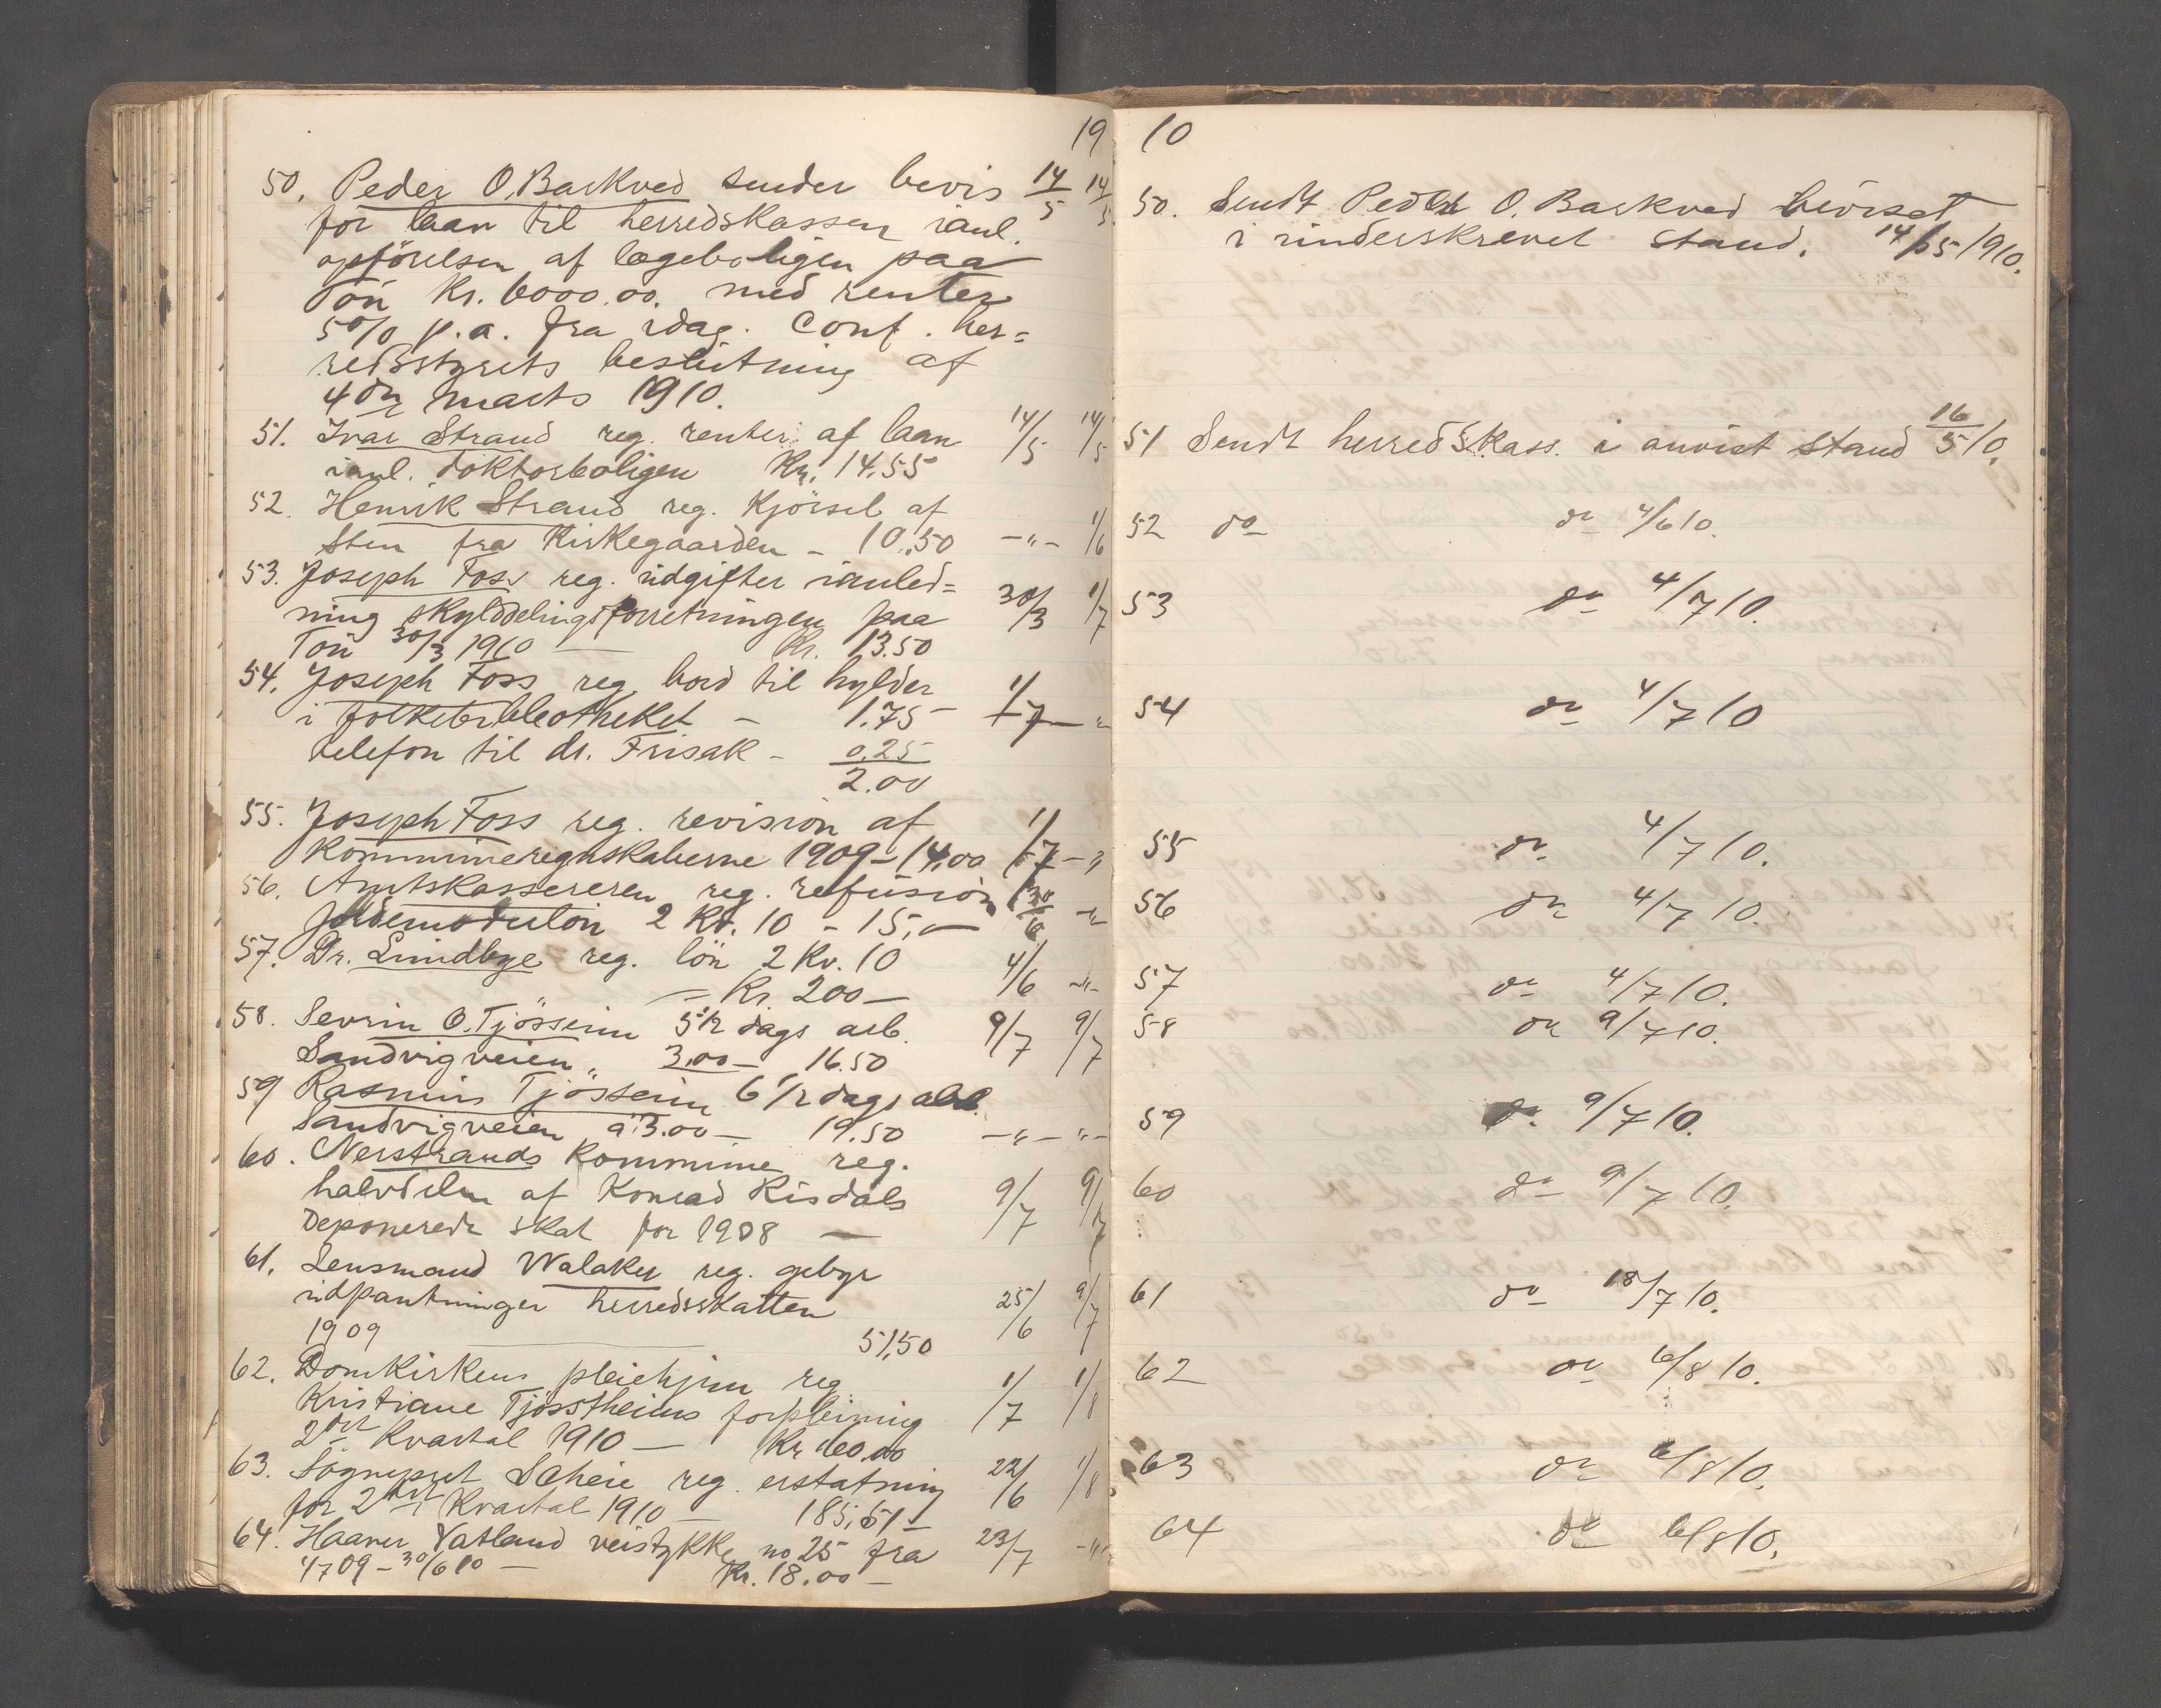 19
50. Peder O. Barkved sender bevis 14/5 14/5
for laan til herredskassen ianl.
opförelsen af lægeboligen paa
Tön Kr. 6000.00. med renter
5 0/0 p.a. fra idag. Conf. her=
redsstyrets beslutning af
4de marts 1910.
51. Ivar Strand reg. renter af laan 14/5 14/5
ianl. doktorboligen Kr. 14.55
52. Henrik Strand reg. Kjörsel af
Sten fra Kirkegaarden - 10.50 -"- 1/6
53. Joseph Foss reg. udgifter ianled=
ning skylddelingsforretningen paa 30/3 1/7
Tön 30/3 1910 — Kr. 13.50
54. Joseph Foss reg. bord til hylder 1/7
i folkebibliotheket - 1.75 "
telefon til dr. Frisak - 0.25
2.00
55. Joseph Foss reg. revision af 1/7
Kommuneregnskaberne 1909 - 14.00 - "
56. Amtskassereren reg. refusion 30/6
Jordemoderlön 2 Kv. 10 - 15.— -"-
57. Dr. Lindbye reg. lön 2 Kv. 10 4/6 -"-
— Kr. 200 —
58. Sevrin O. Tjösseim 5 1/2 dags arb. 9/7 9/7
Sandvigveien " 3.00 — 16.50
59 Rasmus Tjösseim 6 1/2 dags arb.
Sandvigveien à 3.00 — 19.50 -"- "-
60. Nerstrands Kommune reg.
halvdelen af Konrad Risdals 9/7 9/7
Deponerede skat for 1908 —
61. Lensmand Walaker reg. gebyr
udpantninger herredsskatten 25/6 9/7
1909 — 51,50
62. Domkirkens pleiehjem reg
Kristiane Tjösstheims forpleining 1/7 1/8
2det Kvartal 1910 — Kr. 60.00
63. Sogneprest Scheie reg. erstatning 22/6 1/8
for 2det Kvartal 1910 — 185,51 —
64. Haaver Vatland veistykke no 25 fra 23/7 -"-
1/7 09 - 30/6 10 — Kr. 18.00 —
10
50. Sendt Peder O. Barkved beviset
i underskrevet stand. 14/5 1910.
51 Sendt herredskass. i anvist stand 16/5 10.
52 do do 4/6 10.
53 do 4/7 10.
54 do 4/7 10
55 do 4/7 10.
56 do 4/7 10.
57 do 4/7 10.
58 do 9/7 10.
59 do 9/7 10.
60 do 9/7 10.
61 do 18/7 10.
62 do 6/8 10.
63 do 6/8 10.
64 do 6/8 10.